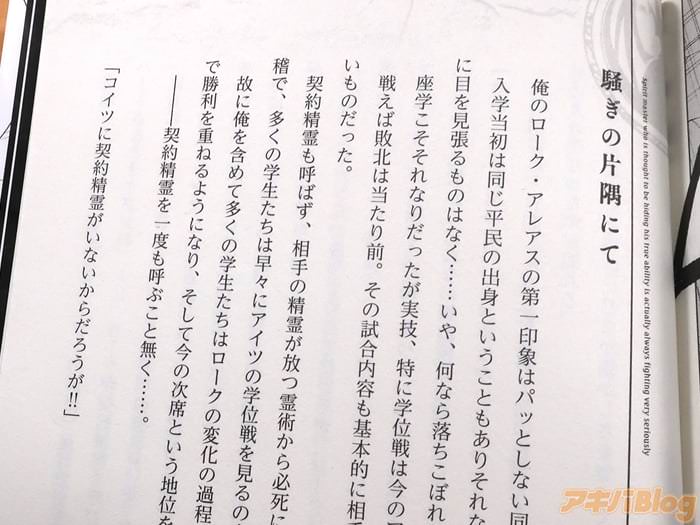 Spirit master who is thought to be hiding his true ability is actually always fighting very seriously
騒ぎの片隅にて
俺のローク・アレアスの第一印象はパッとしない同
入学当初は同じ平民の出身ということもありそれな
に目を見張るものはなく……いや、何なら落ちこぼれ
座学こそそれなりだったが実技、特に学位戦は今の
戦えば敗北は当たり前。その試合内容も基本的に相手
いものだった。
契約精霊も呼ばず、相手の精霊が放つ霊術から必死に
稽で、多くの学生たちは早々にアイツの学位戦を見るの
故に俺を含めて多くの学生たちはロークの変化の過程
で勝利を重ねるようになり、そして今の次席という地位を
――契約精霊を一度も呼ぶこと無く……。
「コイツに契約精霊がいないからだろうが!!」
アキバBlog